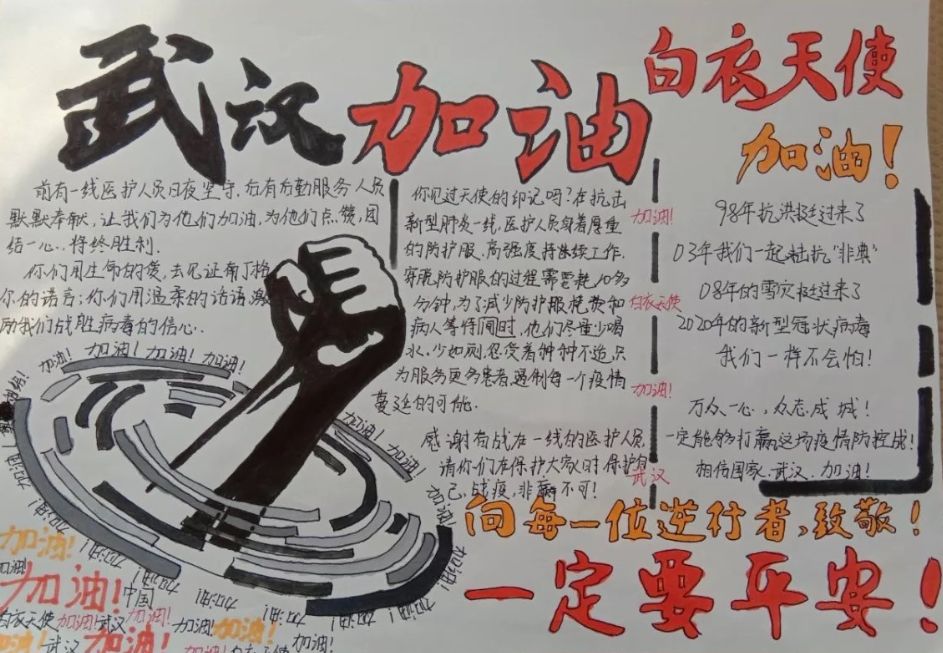 武汉加油
白衣天使
加油!
前有一线医护人员日夜坚守,后有后勤服务人员
默默奉献,让我们为他们加油,为他们点赞,团
结一心,终将胜利.
你们用生命的
你的诺言;你们用温柔的话语激
励我们战胜病毒的信心.
你见过天使的印记吗?在抗击
新型肺炎一线,医护人员身着厚重
的防护服,高强度持续工作.
穿脱防护服的过程需要耗10多
分钟,为了减少防护服耗费和
病人等待时间,他们尽量少喝
水,少如厕,忍受着种种不适,只
为服务更多患者,遏制每一个疫情
蔓延的可能.
感谢奋战在一线的医护人员
请你们在保护大家时保护自
己,战疫,非赢不可!
加油!
白衣天使
加油!
武汉
98年抗洪挺过来了
03年我们一起抵抗"非典"
08年的雪灾挺过来了
2020年的新型冠状病毒
我们一样不会怕!
万众一心,众志成城!
一定能够打赢这场疫情防控战!
相信国家.武汉.加油!
向每一位逆行者,致敬!
一定要平安!
加油! 加油! 加油! 加油!
加油!
加油!
加油!
加油!
加油! 中国 加油!
白衣天使 加油! 武汉
加油! 加油!
武汉 加油! 加油! 白衣天使 加油!